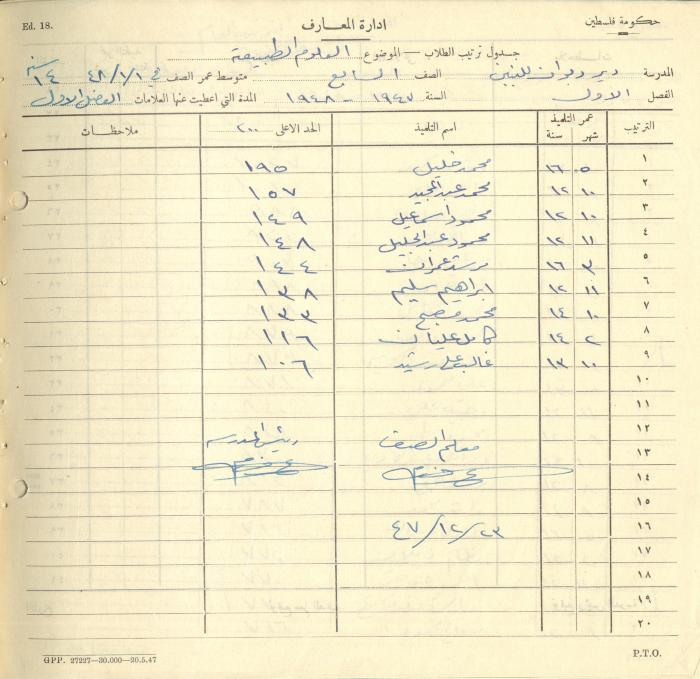 Ed. 18. ادارة المعارف حكومة فلسطين
جدول ترتيب الطلاب — الموضوع العلوم الطبيعية
المدرسة دير دبوان للبنين الصف السابع متوسط عمر الصف في ٤٨/١/١ ١٤ سنة
الفصل الاول السنة ١٩٤٧ - ١٩٤٨ المدة التي اعطيت عنها العلامات الفصل الاول
الترتيب عمر التلميذ شهر سنة اسم التلميذ الحد الاعلى ٢٠٠ ملاحظات
١ ٥ ١٦ محمد خليل ١٩٥
٢ ١٠ ١٢ محمد عبد المجيد ١٥٧
٣ ١٠ ١٢ محمود اسماعيل ١٤٩
٤ ١١ ١٢ محمود عبد الجليل ١٤٨
٥ ٣ ١٦ مرشد عمران ١٤٤
٦ ١١ ١٢ ابراهيم سليم ١٣٨
٧ ١٠ ١٤ محمد مصبح ١٣٣
٨ ٢ ١٤ كامل عليان ١١٦
٩ ١٠ ١٣ غالب علي رشيد ١٠٦
١٠
١١
١٢
معلم الصف رئيس المدرسة
١٣
١٤
١٥
١٦ ٤٧/١٢/٢٣
١٧
١٨
١٩
٢٠
GPP. 27227—30.000—20.5.47 P.T.O.